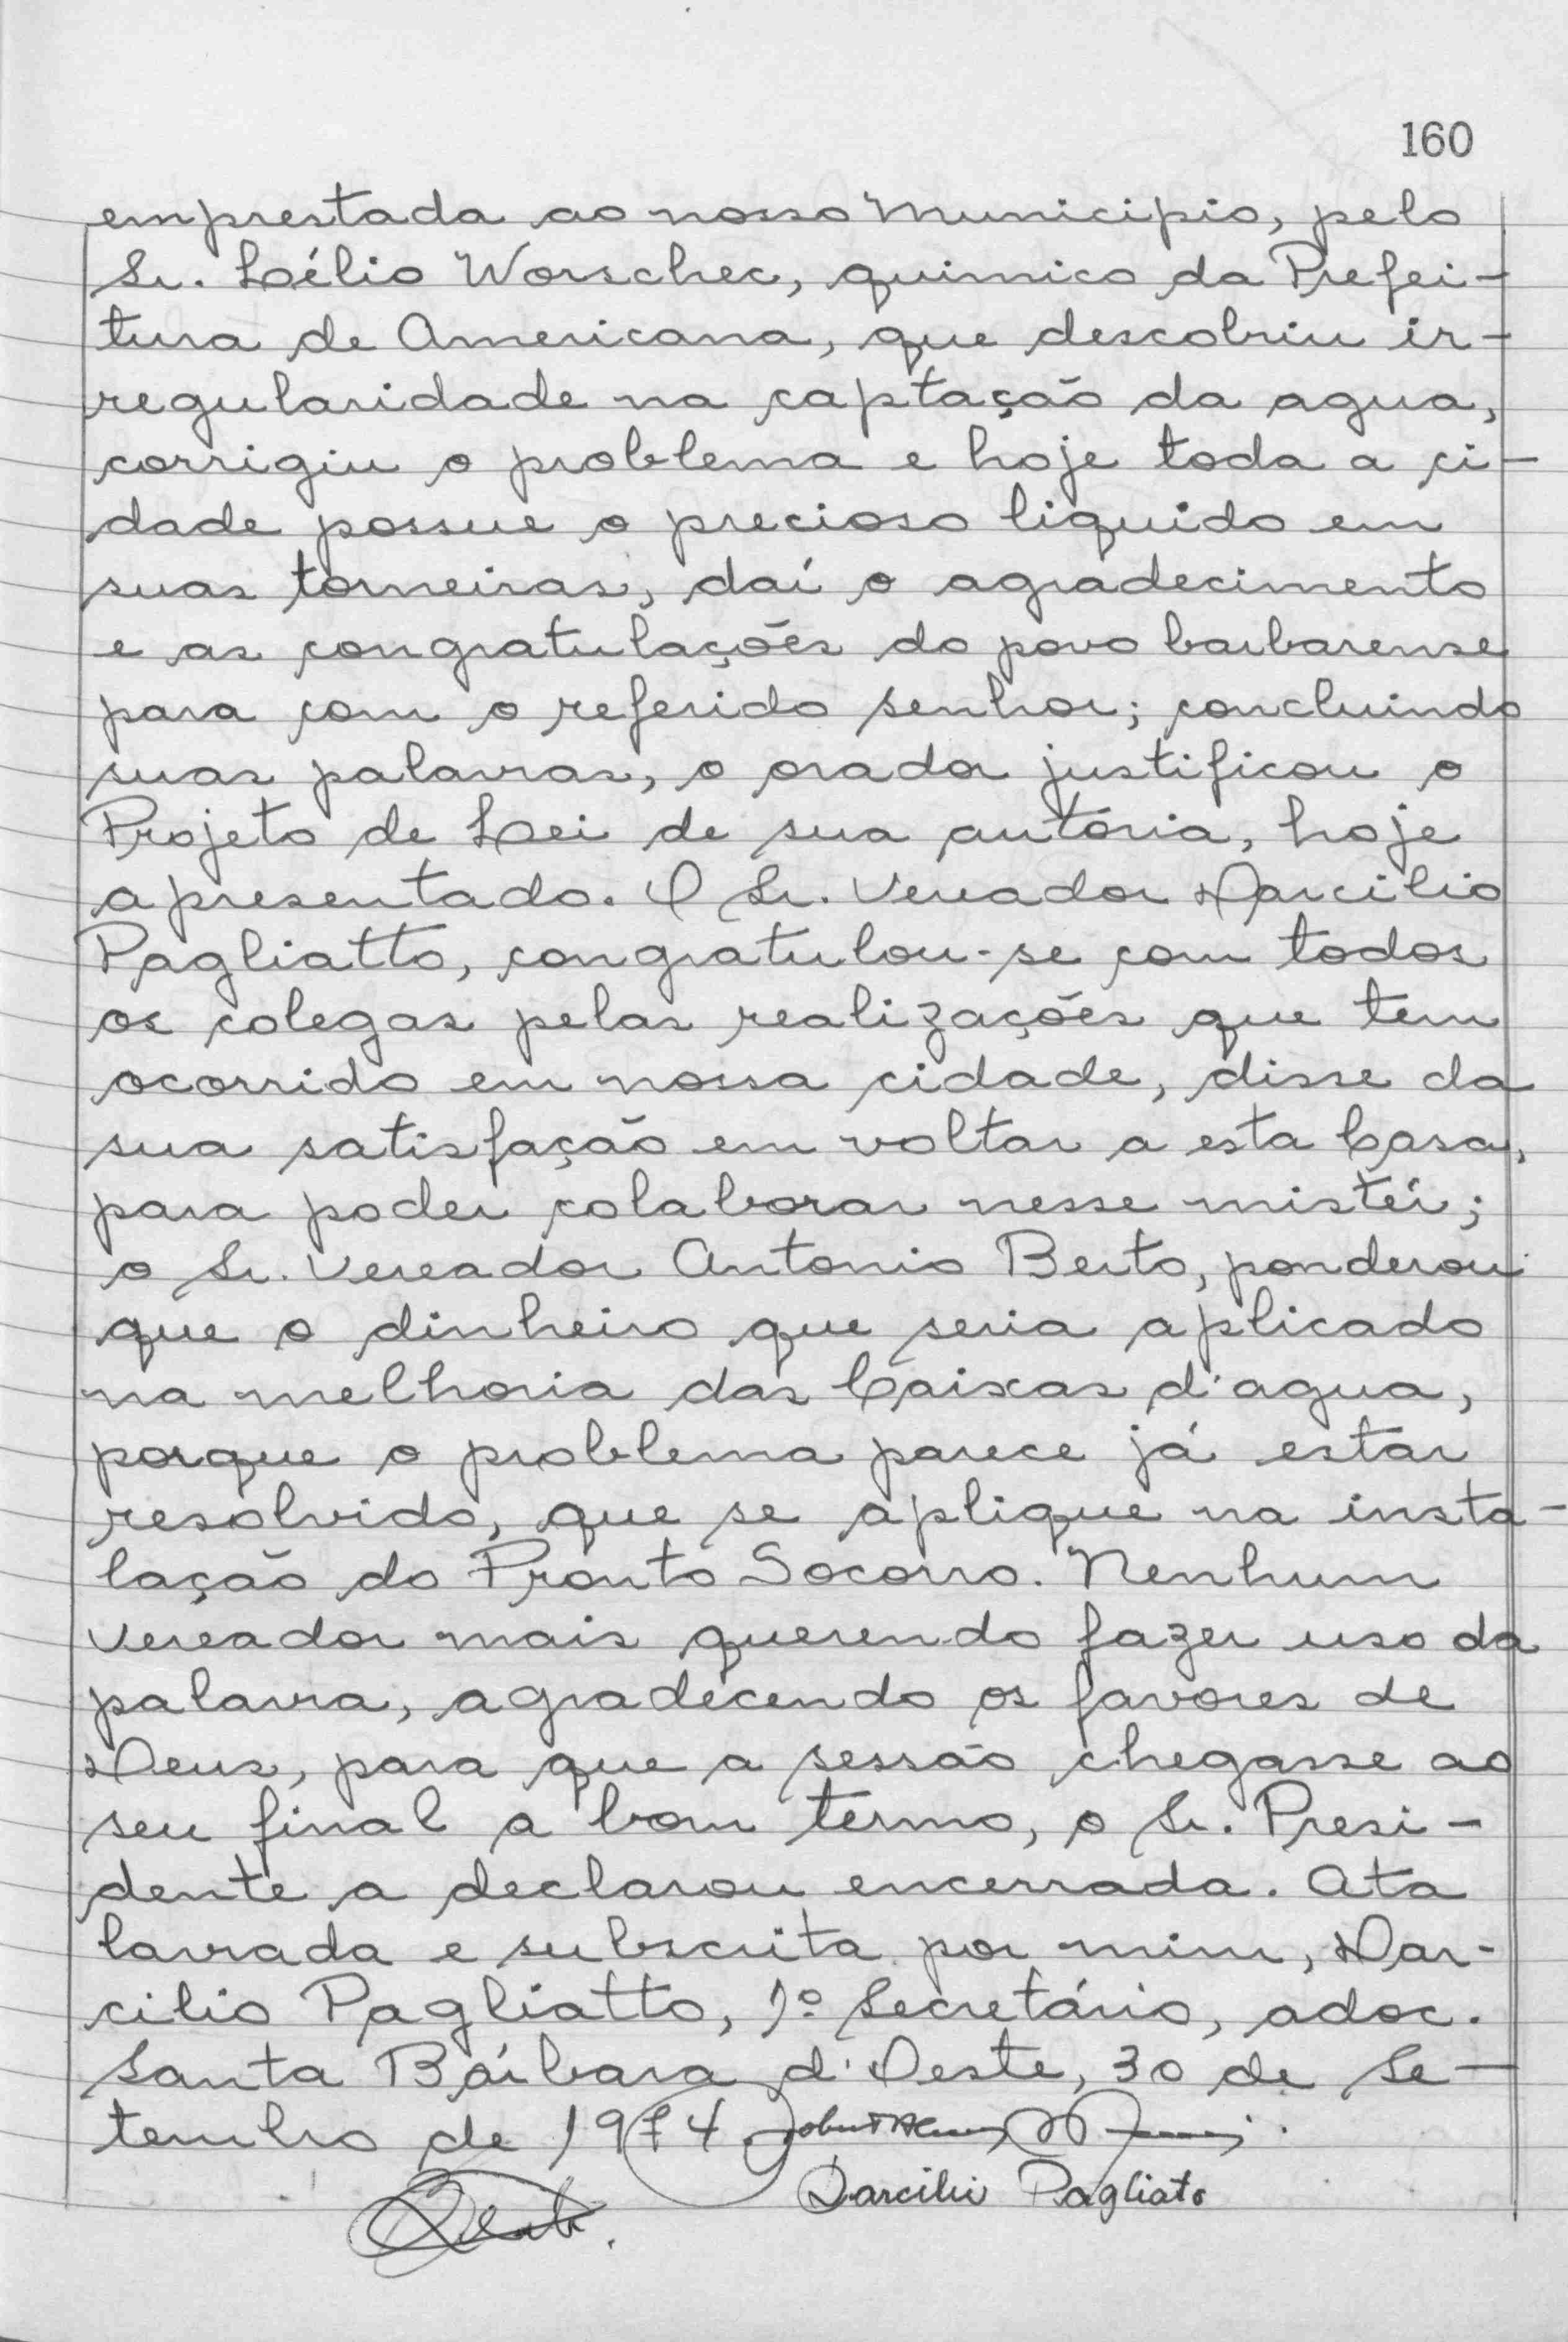 160
emprestada ao nosso Municipio, pelo
Sr. Lélio Worschec, quimico da Prefei-
tura de Americana, que descobriu ir-
regularidade na captação da agua,
corrigiu o problema e hoje toda a ci-
dade possue o precioso liquido em
suas torneiras, daí o agradecimento
e as congratulações do povo barbarense
para com o referido senhor; concluindo
suas palavras, o orador justificou o
Projeto de Lei de sua autoria, hoje
apresentado. O Sr. Vereador Darcilio
Pagliatto, congratulou-se com todos
os colegas pelas realizações que tem
ocorrido em nossa cidade, disse da
sua satisfação em voltar a esta Casa,
para poder colaborar nesse mistér;
o Sr. Vereador Antonio Berto, ponderou
que o dinheiro que seria aplicado
na melhoria das Caixas d'agua,
porque o problema parece já estar
resolvido, que se aplique na insta-
lação do Pronto Socorro. Nenhum
Vereador mais querendo fazer uso da
palavra, agradecendo os favores de
Deus, para que a sessão chegasse ao
seu final a bom termo, o Sr. Presi-
dente a declarou encerrada. Ata
lavrada e subscrita por mim, Dar-
cilio Pagliatto, 1º Secretário, adoc.
Santa Bárbara d'Oeste, 30 de Se-
tembro de 1974
Darcilio Pagliato